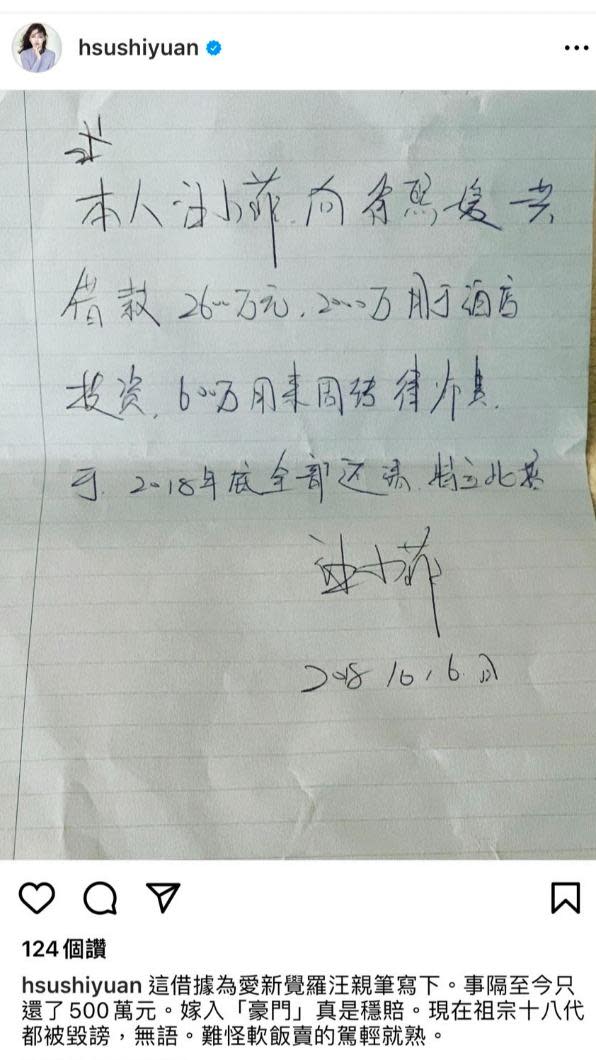 hsushiyuan
本人汪小菲,向徐熙媛共
借款 2600万元,2000万用于酒店
投资,600万用来周转律师费,
于,2018年底全部还清,特立此
汪小菲
2018
124個讚
hsushiyuan 這借據為愛新覺羅汪親筆寫下。事隔至今只
還了500萬元。嫁入「豪門」真是穩賠。現在祖宗十八代
都被毀謗，無語。難怪軟飯賣的駕輕就熟。